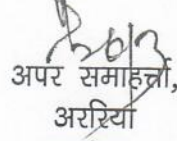 अपर समाहर्त्ता,
अररिया